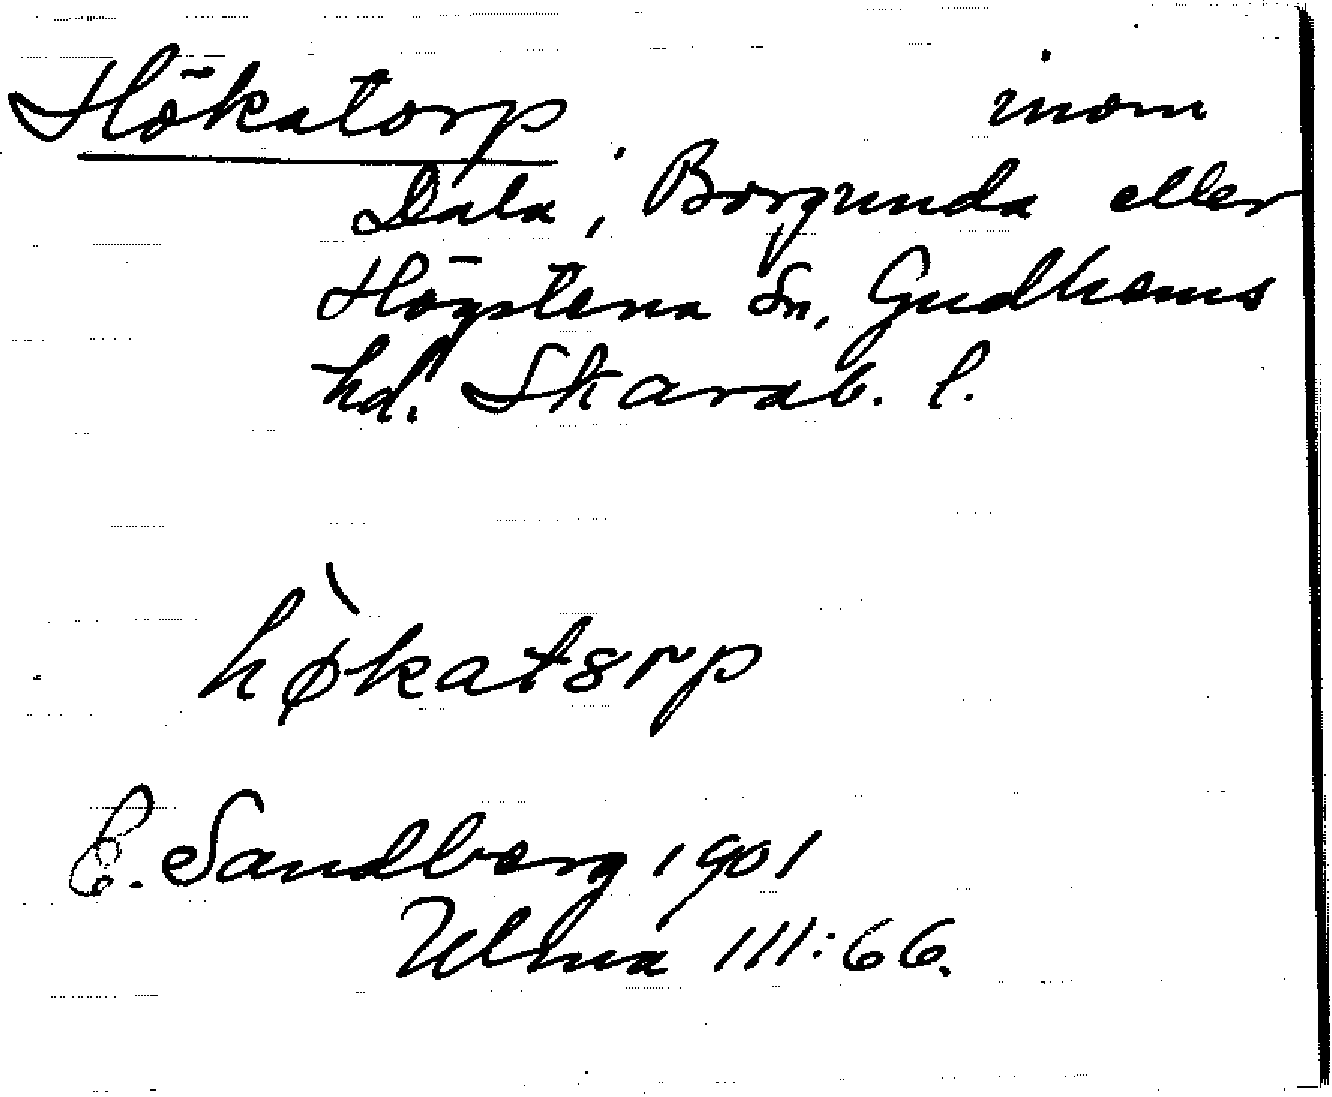 Hökatorp inom
Dala, Borgunda eller
Högstena Sn, Gudhems
hd. Skarab. l.
hø̀katorp
E. Sandberg 1901
Ulma 111:66.